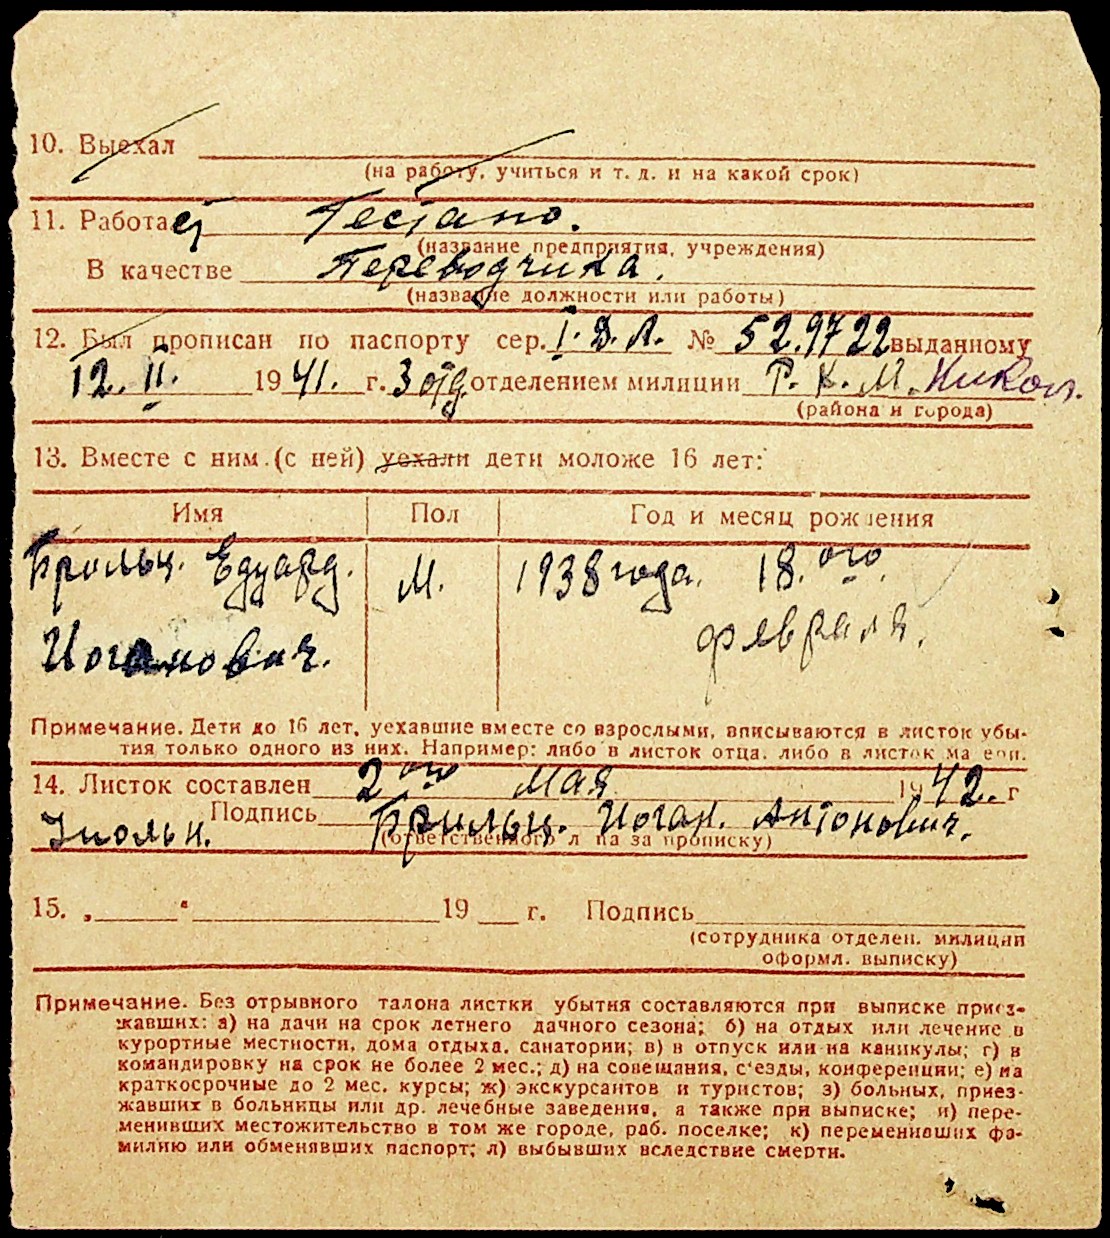 10. Выехал
(на работу, учиться и т. д. и на какой срок)
11. Работает Гестапо.
(название предприятия, учреждения)
В качестве Переводчика.
(название должности или работы)
12. Был прописан по паспорту сер. I. Д. Л. № 52.9722 выданному
12. II. 1941. г. 3 отд. отделением милиции Р. К. М. Никол.
(района и города)
13. Вместе с ним (с ней) уехали дети моложе 16 лет:
Имя Пол Год и месяц рождения
Брильц. Едуард. М. 1938 года. 18. ого.
Иоганович. февраля.
Примечание. Дети до 16 лет, уехавшие вместе со взрослыми, вписываются в листок убы-
тия только одного из них. Например: либо в листок отца, либо в листок ма ери.
14. Листок составлен 2 ого мая 1942. г
Подпись Брильц. Иоган. Антонович.
(ответственного л ца за прописку)
15. „ “ 19 г. Подпись
(сотрудника отделен. милиции
оформл. выписку)
Примечание. Без отрывного талона листки убытия составляются при выписке приез-
жавших: а) на дачи на срок летнего дачного сезона; б) на отдых или лечение в
курортные местности, дома отдыха, санатории; в) в отпуск или на каникулы; г) в
командировку на срок не более 2 мес.; д) на совещания, с'езды, конференции; е) на
краткосрочные до 2 мес. курсы; ж) экскурсантов и туристов; з) больных, приез-
жавших в больницы или др. лечебные заведения, а также при выписке; и) пере-
менивших местожительство в том же городе, раб. поселке; к) переменивших фа-
милию или обменявших паспорт; л) выбывших вследствие смерти.